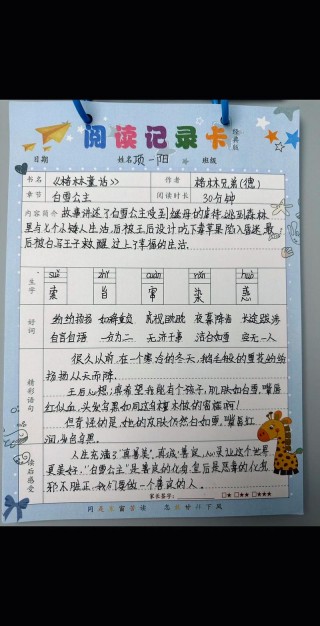 阅读记录卡 经典版
日期 姓名 项一阳 班级
书名 《格林童话》 作者 格林兄弟(德)
章节 白雪公主 阅读时长 30分钟
内容简介 故事讲述了白雪公主受到继母的虐待,逃到森林
里与七个小矮人生活,后被王后设计吃下毒苹果陷入昏迷,最
后被白马王子救醒,过上了幸福的生活。
生字
suǒ zhǐ cuàn rǎn huò
索 旨 窜 染 惑
好词
纷纷扬扬 如释重负 忽视眈眈 夜幕降临 长途跋涉
自言自语 一分为二 无济于事 洁白如雪 空无一人
精彩语句
很久以前,在一个寒冷的冬天,鹅毛般的雪花纷纷
扬扬从天而降。
王后心想:真希望我能有个孩子,肌肤如白雪,嘴唇
红似血,头发乌黑如同这乌檀木做的窗框啊!
但奇怪的是,她的皮肤仍然白如雪,嘴唇红
润,头发乌黑。
读后感受
人生充满了"真善美",真诚、善良、心灵让这个世界
更美好。"白雪公主"是善良的化身,皇后是恶毒的化身,
邪不胜正,我们要做一个善良的人。
家长签字: □★ □★★ □★★★